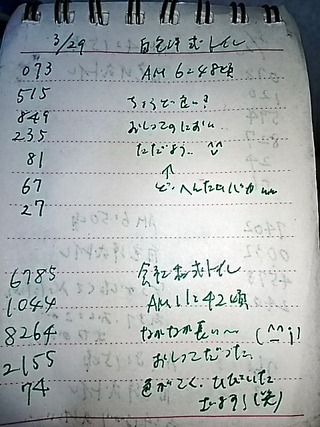 3/29 自宅洋式トイレ
073 AM 6:48頃
515 ちょうど良い!
849 おしっこのにおい
235 ただよう..
81 ↑
67 ど、へんたいバカ
27
6785 会社 洋式トイレ
1044 AM 11:42頃
8264 なかなか長い〜 (^^;)
2155 おしっこだった
74 色がこく、ひびいた
(笑)